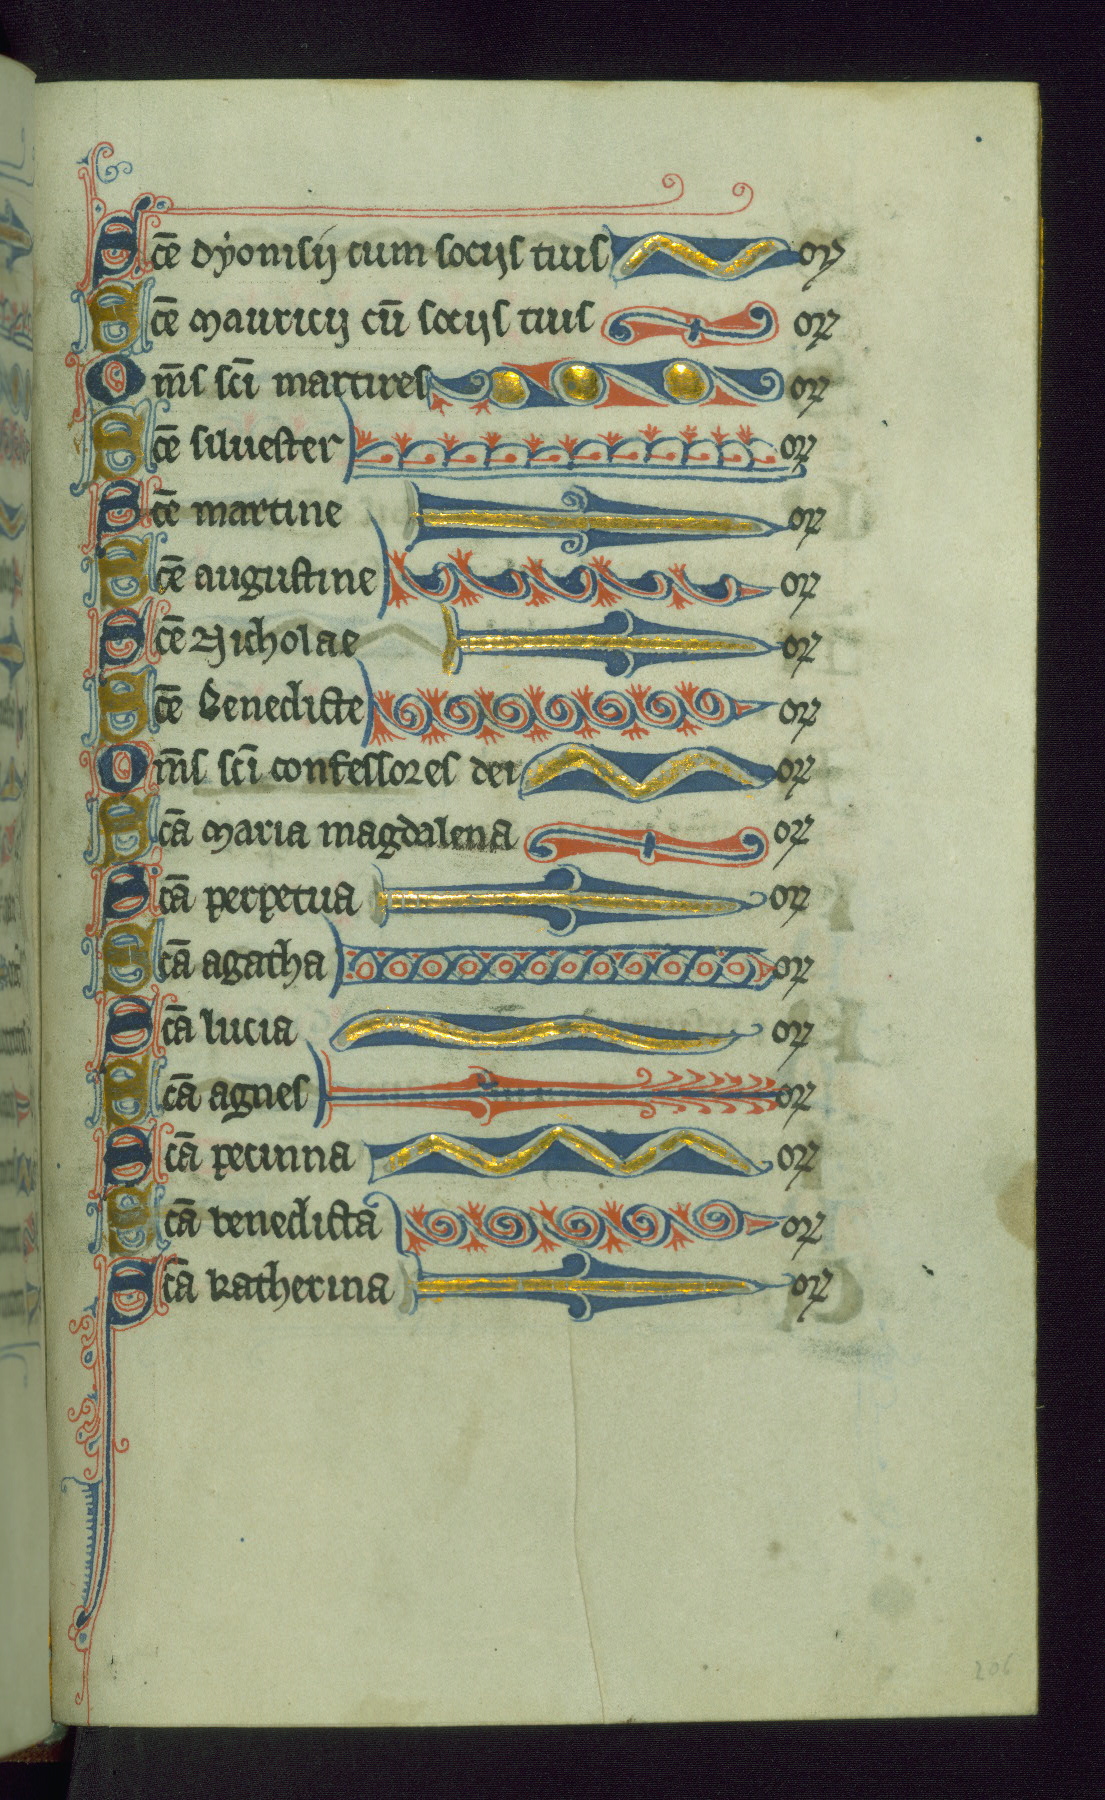 Sce dyonisij cum socijs tuis or
Sce mauricij cū socijs tuis or
Om̄s sc̄i martires or
Sc̄e siluester or
Sc̄e martine or
Sc̄e augustine or
Sc̄e Nicholae or
Sc̄e benedicte or
Om̄s sc̄i confessores dei or
Sc̄a maria magdalena or
Sc̄a perpetua or
Sc̄a agatha or
Sc̄a lucia or
Sc̄a agnes or
Sc̄a pecinna or
Sc̄a benedicta or
Sc̄a katherina or
206